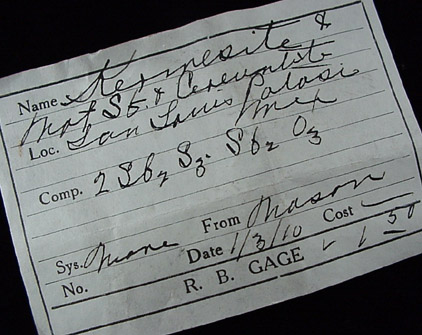 Name Kermesite &
Nat Sb & Cervantite
Loc. San Louis Potosi
Mex
Comp. 2 Sb2 S3. Sb2 O3
Sys. Mono From Mason
No. Date 1/3/10 Cost 1 50
R. B. GAGE